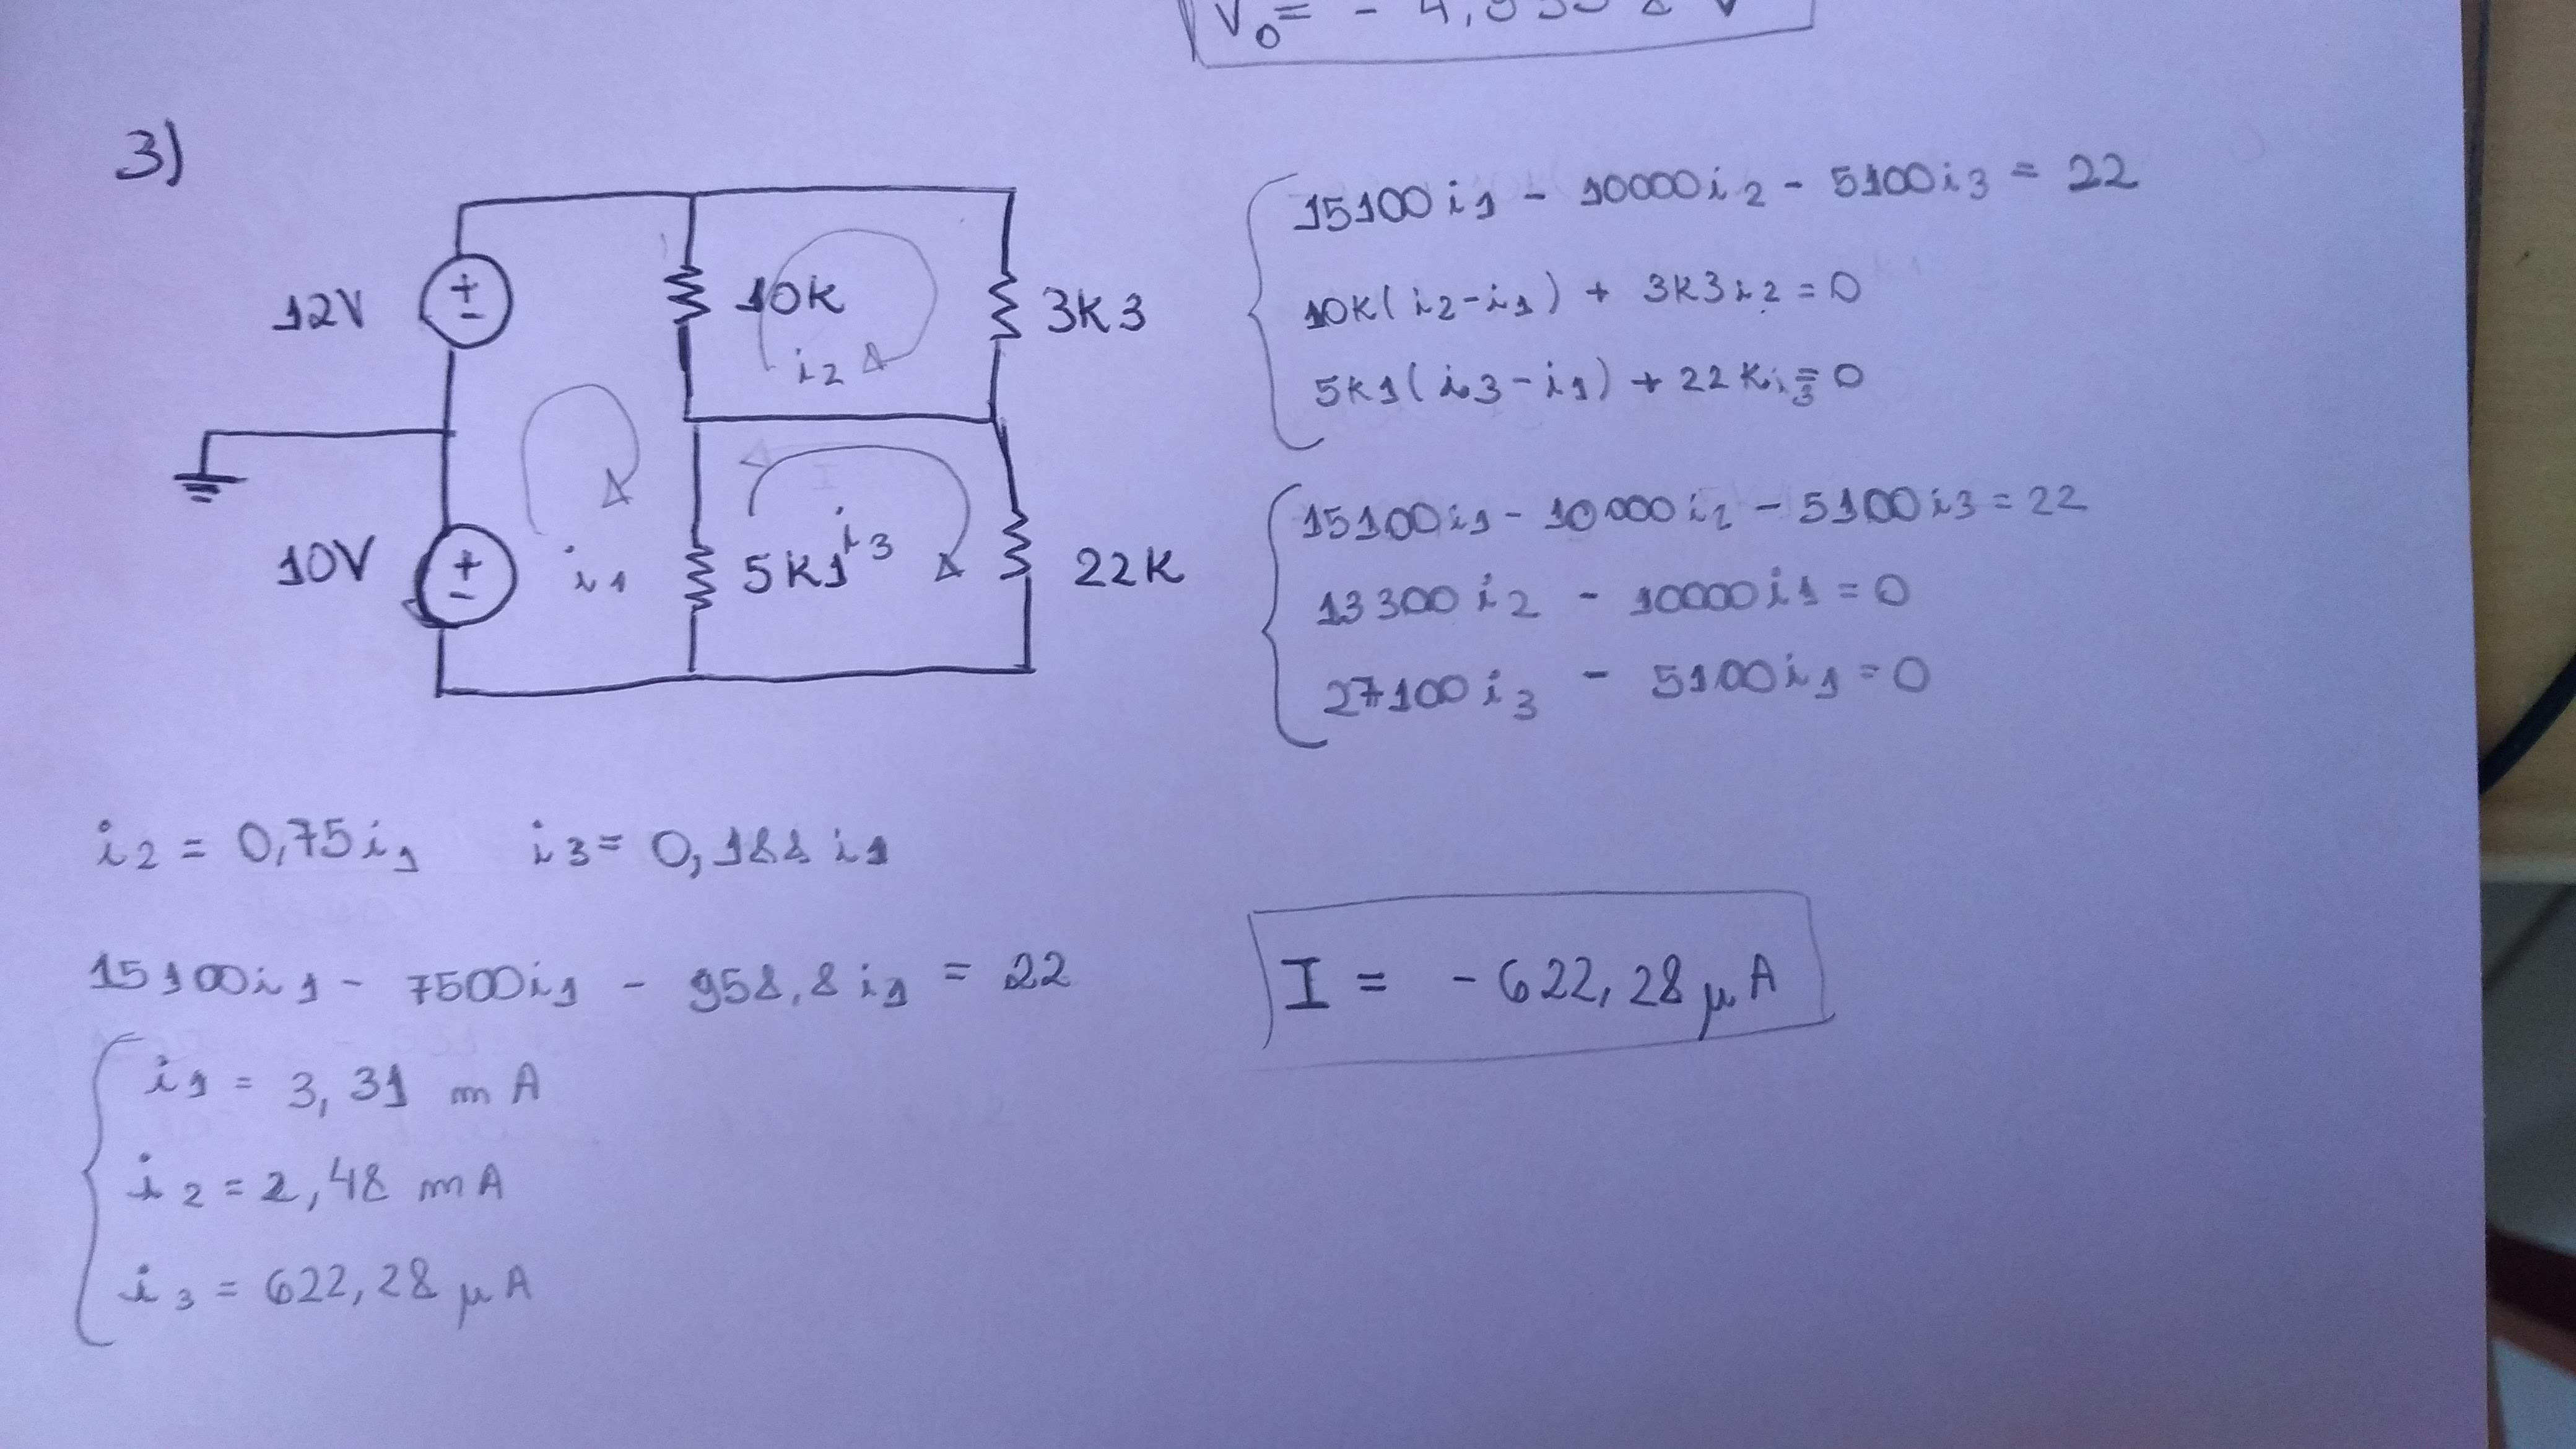 V₀ = - 4,
3)
12V
10k
i₂
3k3
10V
i₁
5k1
i₃
22k
15100i₁ - 10000i₂ - 5100i₃ = 22
10k(i₂-i₁) + 3k3i₂ = 0
5k1(i₃-i₁) + 22ki₃ = 0
15100i₁ - 10000i₂ - 5100i₃ = 22
13300i₂ - 10000i₁ = 0
27100i₃ - 5100i₁ = 0
i₂ = 0,75i₁ i₃ = 0,188i₁
15100i₁ - 7500i₁ - 958,8i₁ = 22
i₁ = 3,31 mA
i₂ = 2,48 mA
i₃ = 622,28 μA
I = - 622,28 μA